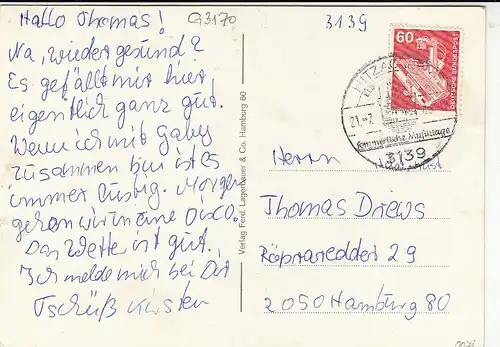 Hallo Thomas!
G3170
3139
Na, wieder gesund?
Es gefällt mir hier
eigentlich ganz gut.
Wenn ich mit Gaby
zusammen bin ist es
immer lustig. Morgen
gehen wir in eine Disco.
Das Wetter ist gut.
Ich melde mich bei Dir
Tschüß Kirsten
Verlag Ferd. Lagerbauer & Co. Hamburg 60
60
DEUTSCHE BUNDESPOST
HITZACKER
21.-7.
Sommerliche Musiktage
3139
Herrn
Thomas Drews
Röpraredder 29
2050 Hamburg 80